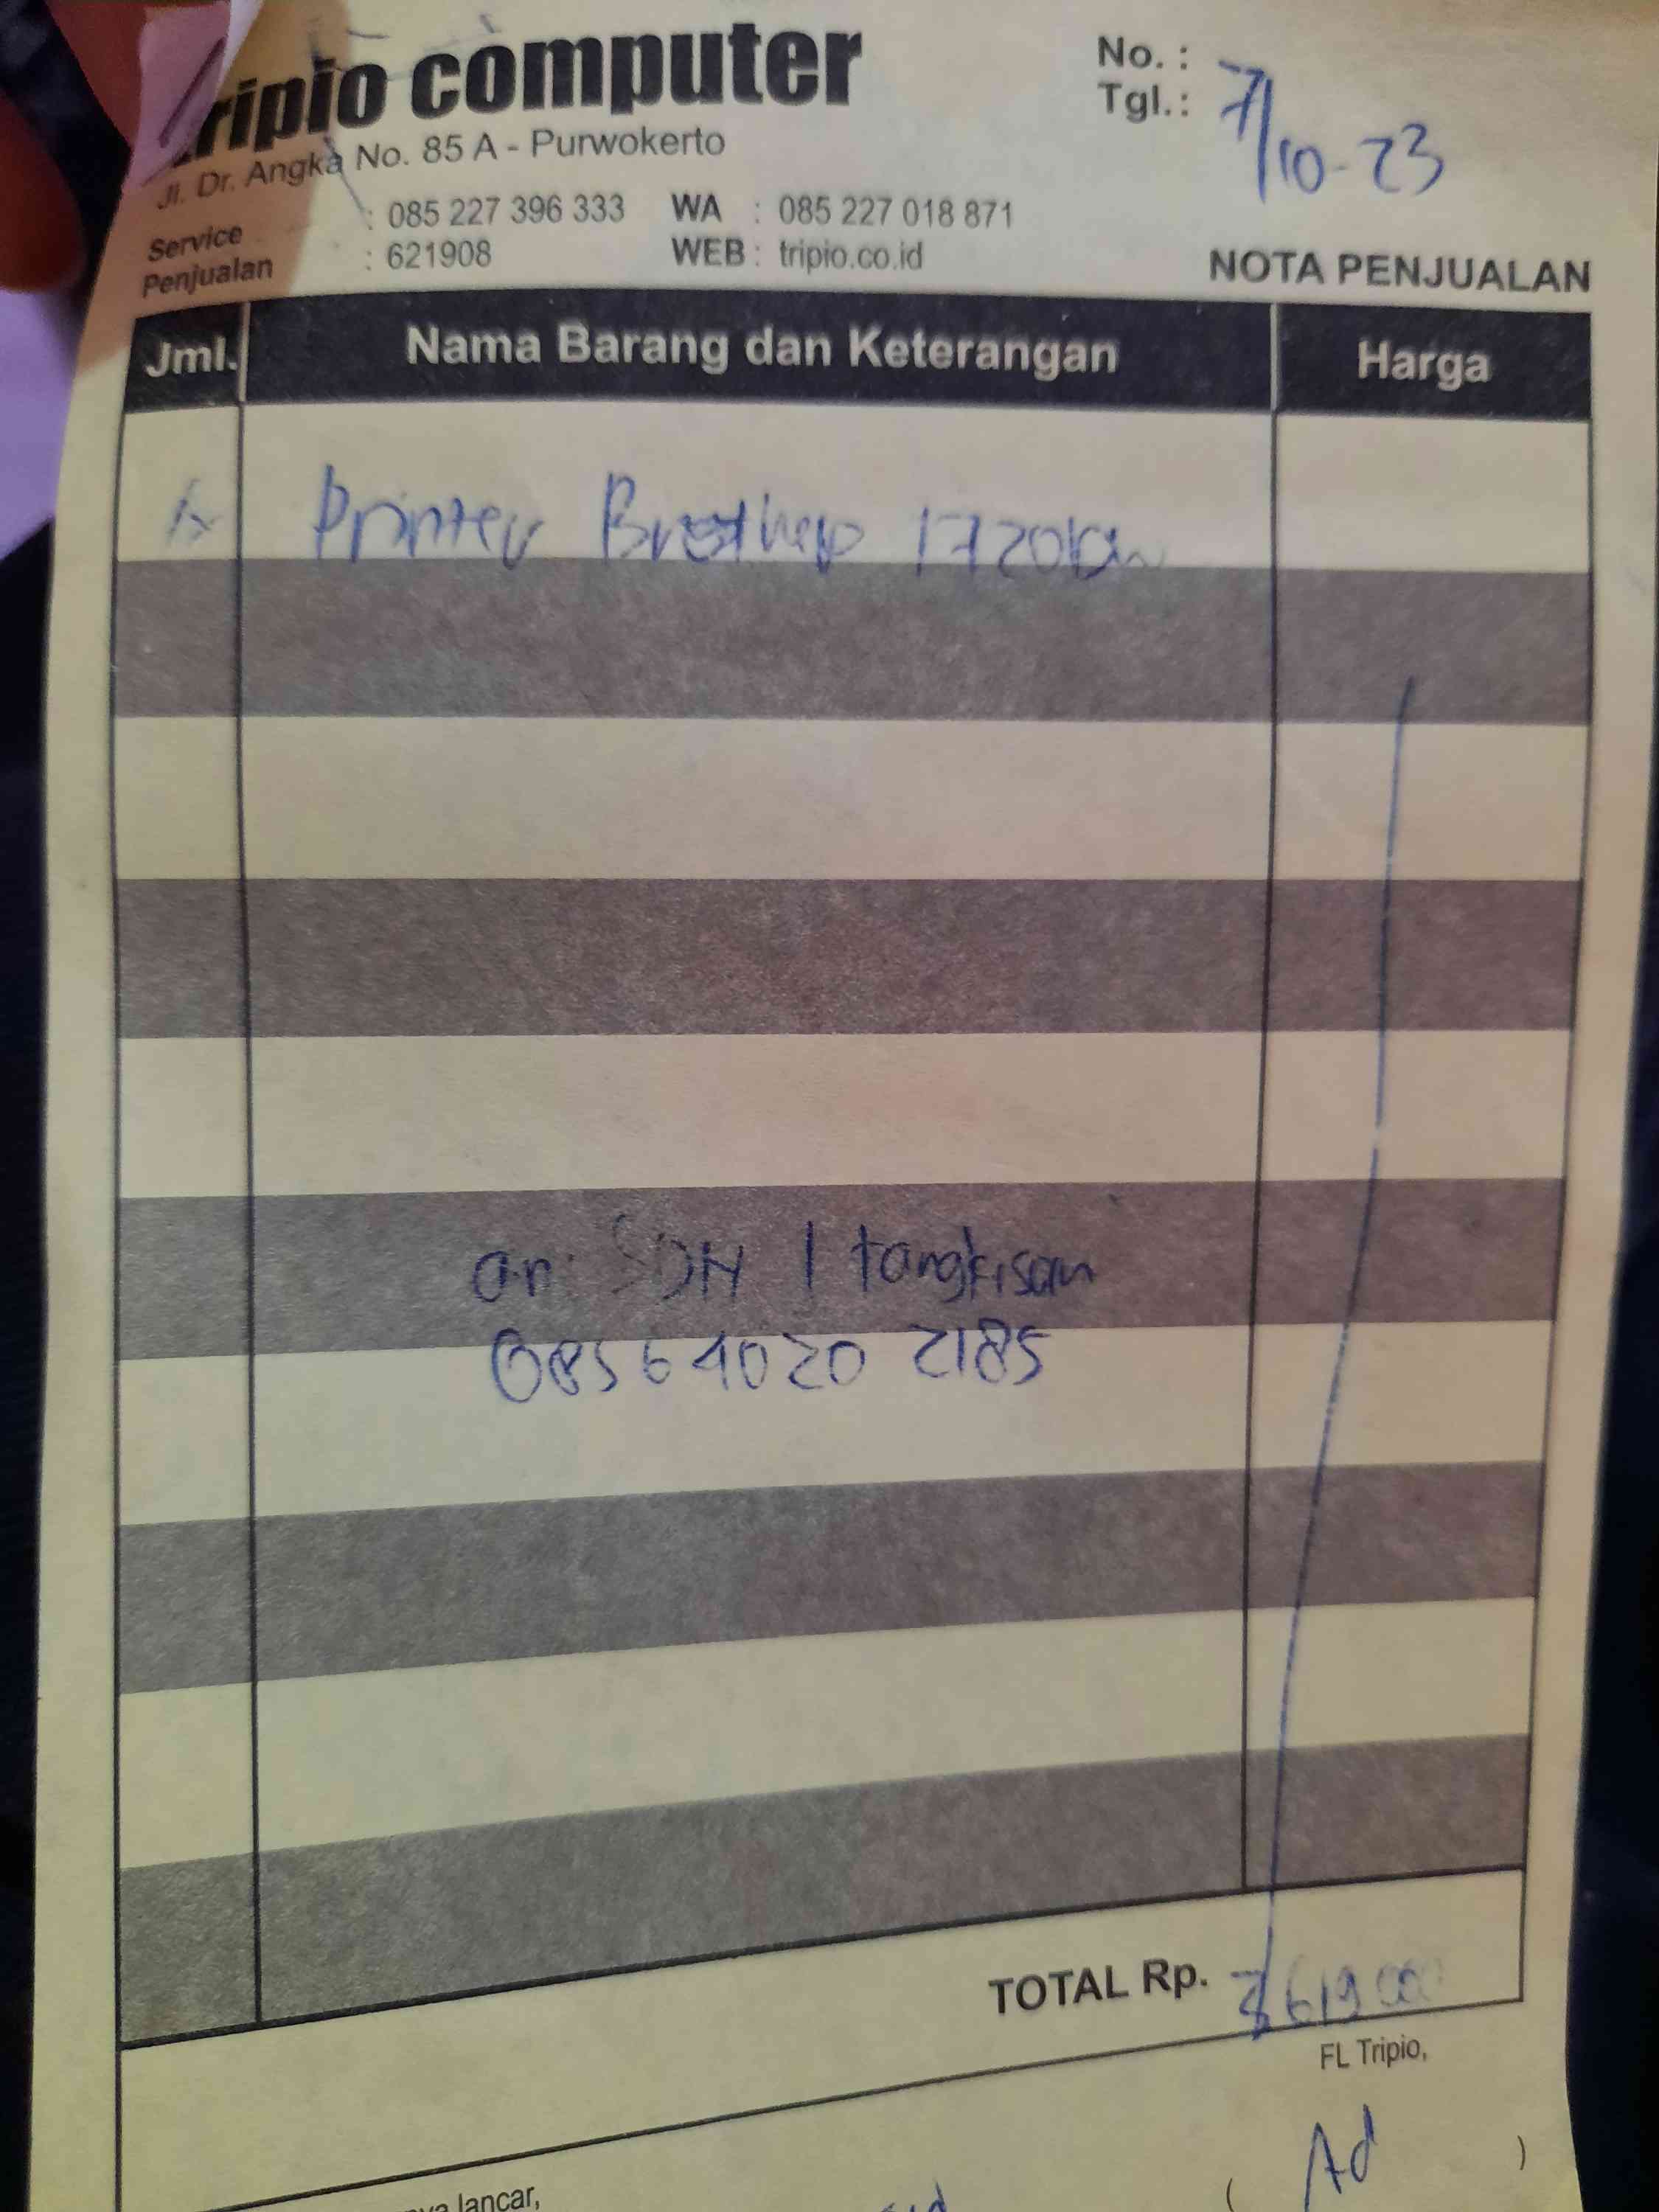 tripio computer
Jl. Dr. Angka No. 85 A - Purwokerto
Service : 085 227 396 333 WA : 085 227 018 871
Penjualan : 621908 WEB : tripio.co.id
No. :
Tgl. : 7/10-23
NOTA PENJUALAN
Jml. Nama Barang dan Keterangan Harga
Printer Brother
an. SDN 1 tangkisan
085640202185
TOTAL Rp. 619 000
FL Tripio,
( Ad )
lancar,